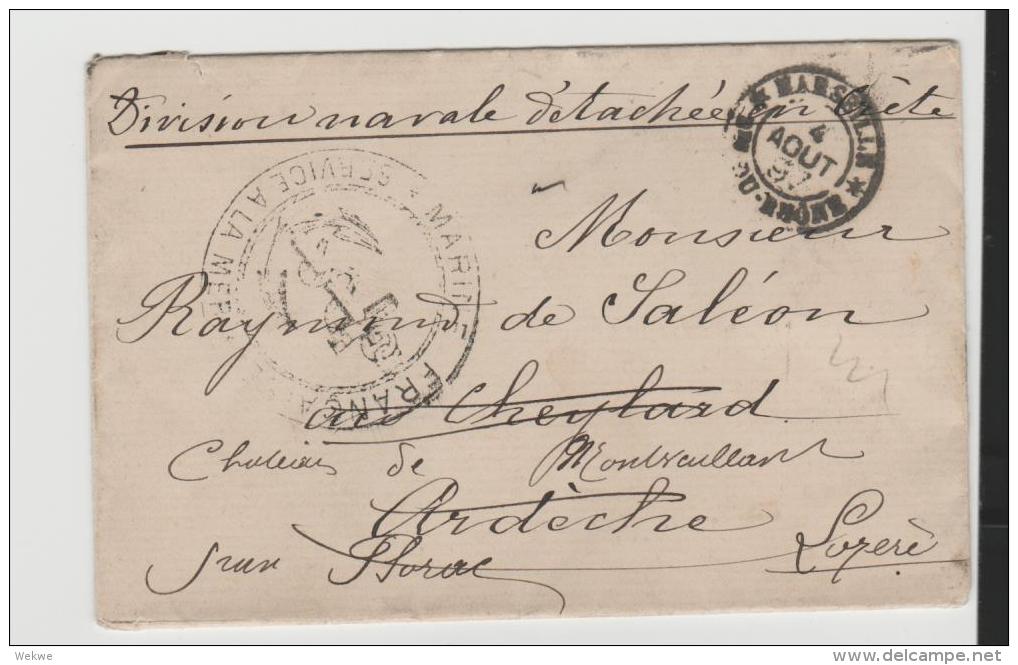 Division navale détachée en Crète
MARSEILLE
4
AOUT
97
BOUCHES-DU-RHONE
MARINE FRANÇAISE
SERVICE A LA MER
Monsieur
Raymond de Saléon
au Cheylard
Chateau de Montvaillant
Ardèche
par Florac Lozère
Wekwe